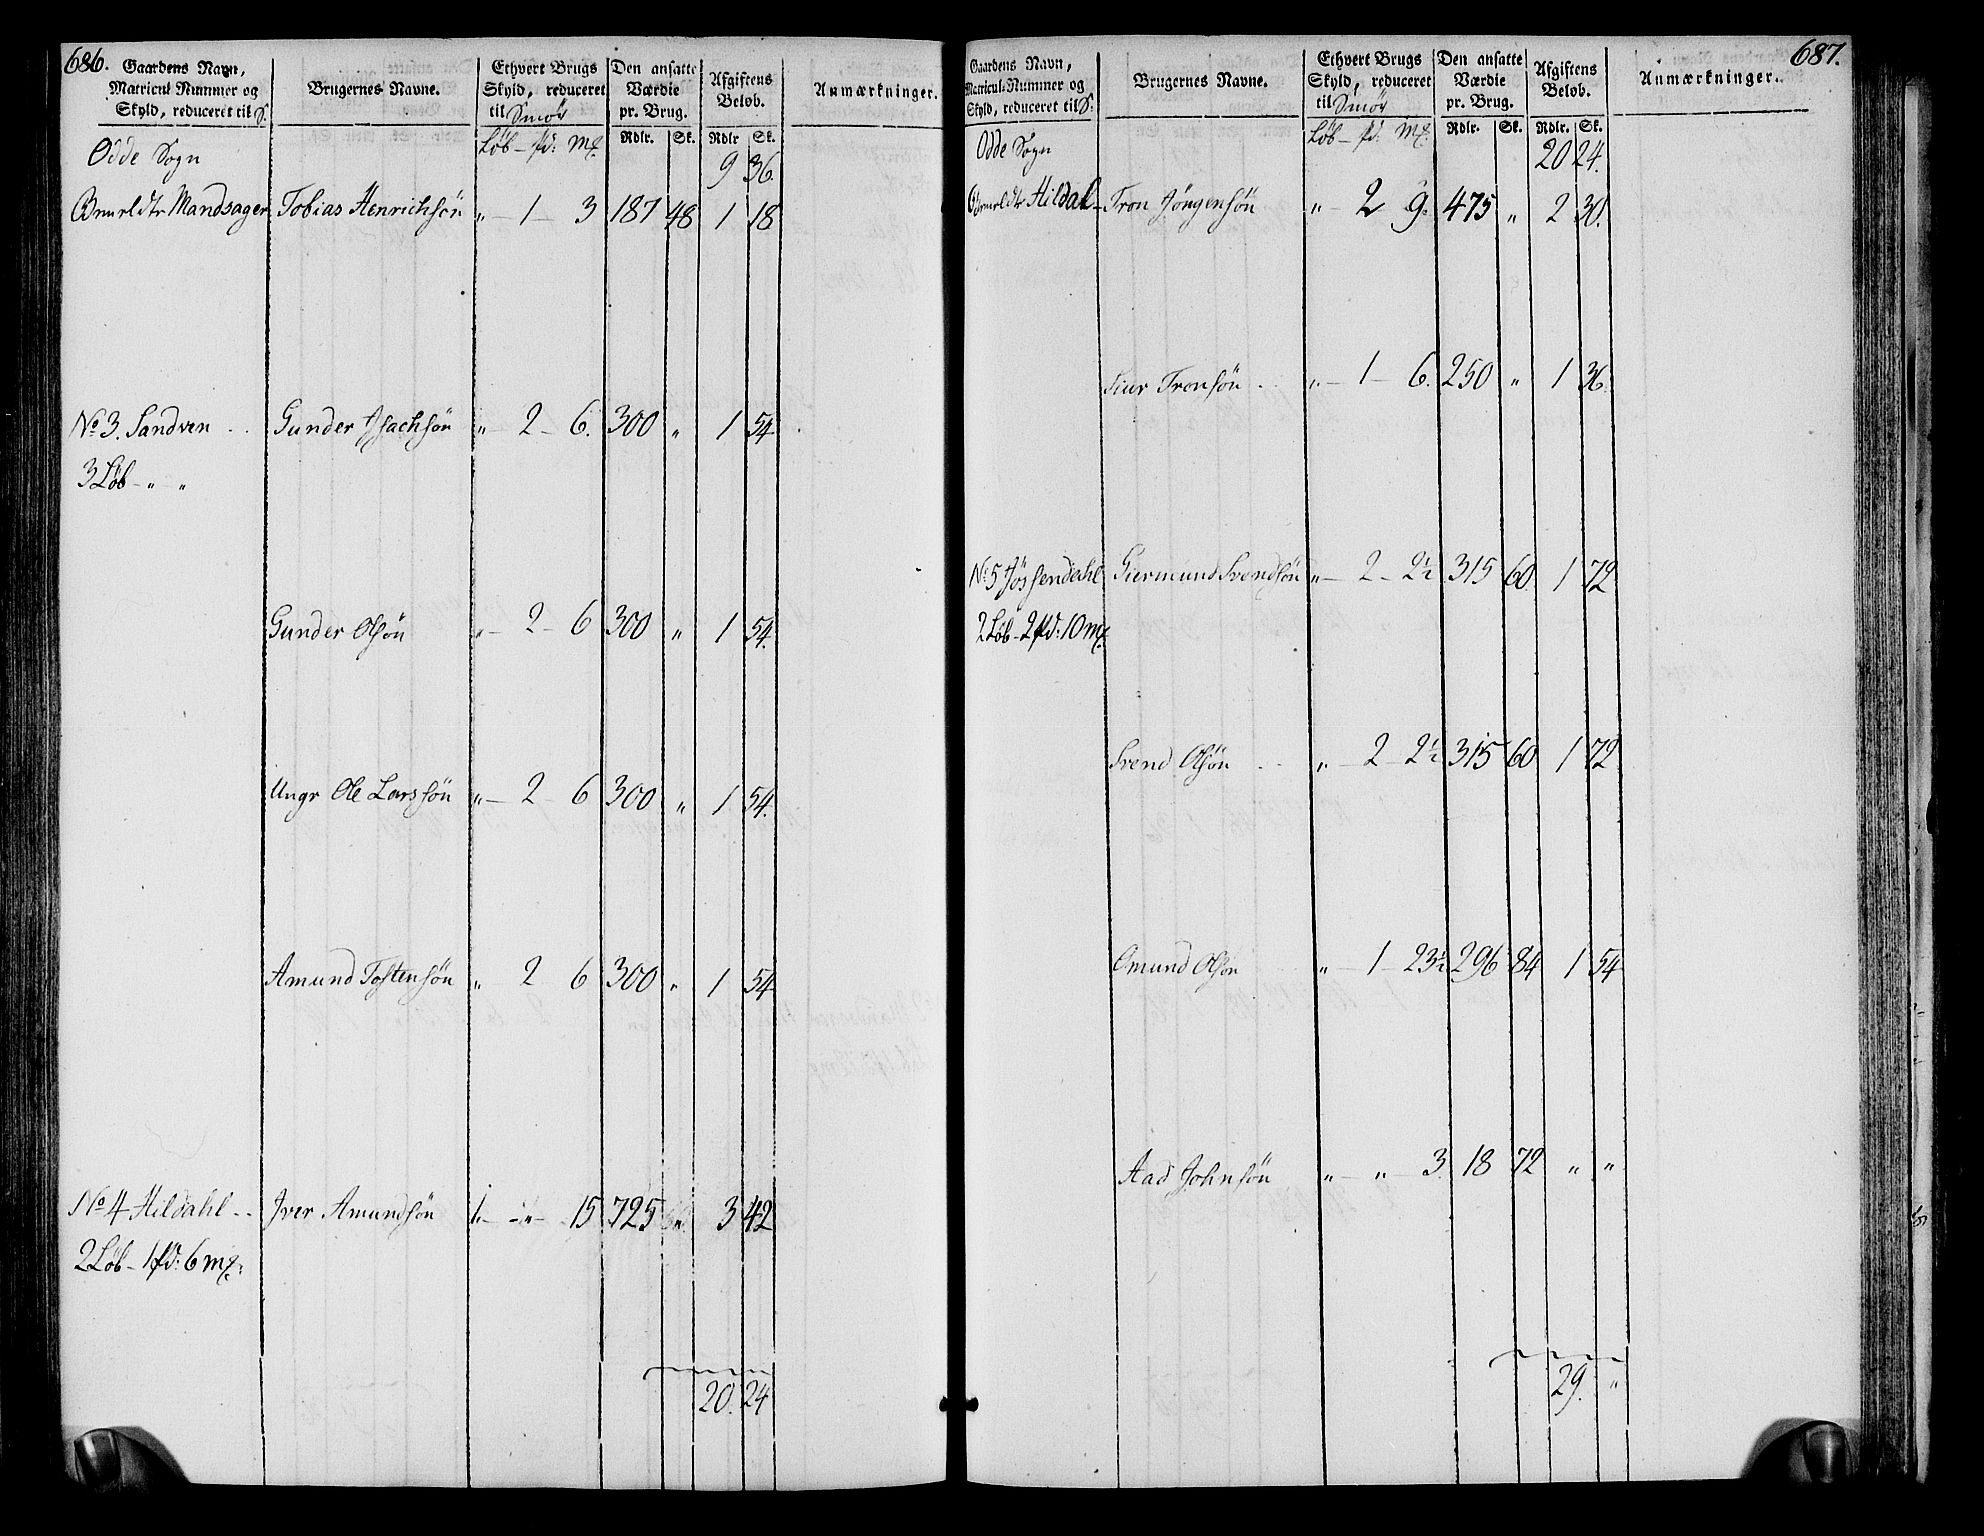 686.
Gaardens Navn, Matricul Nummer og Skyld, reduceret til S:
Brugernes Navne.
Ethvert Brugs Skyld, reduceret til Smör
Den ansatte Værdie pr. Brug.
Afgiftens Belöb.
Anmærkninger.
Löb – pd: mk: Rdlr. Sk. Rdlr Sk.
Odde Sogn 9 36.
Mandsager Tobias Henrichsön „ – 1 – 3 187 48 1 18
No 3. Sandven - - Gunder Isachsön „ – 2 – 6. 300 „ 1 54
3 Löb – „ „
Gunder Olsön „ – 2 – 6 300 „ 1 54.
Ungr Ole Larssön „ – 2 – 6 300 „ 1 54.
Amund Tostensön „ – 2 6 300 „ 1 54
No 4 Hildahl - - Iver Amundsön 1. – „ – 15 725 „ 3 42
2 Löb – 1 pd: 6 mk:
20. 24
687.
Gaardens Navn, Matricul-Nummer og Skyld, reduceret til S:
Brugernes Navne.
Ethvert Brugs Skyld, reduceret til Smör
Den ansatte Værdie pr. Brug.
Afgiftens Belöb.
Anmærkninger.
Löb – pd: mk: Rdlr. Sk. Rdlr. Sk.
Odde Sogn 20 24.
Hildal – Tron Jörgensön „ – 2 9. 475 „ 2 30.
Siur Tronsön - - „ – 1 – 6. 250 „ 1 36.
No 5 Jössendahl Giermund Svendsön „ – 2 – 2½ 315 60. 1 72
2 Löb – 2 pd: 10 mk:
Svend Olsön - - „ – 2 – 2½ 315 60 1 72
Omund Olsön „ – 1 – 23½ 296 84 1 54
Aad Johnsön „ – „ – 3. 18 72 „ „
29. „